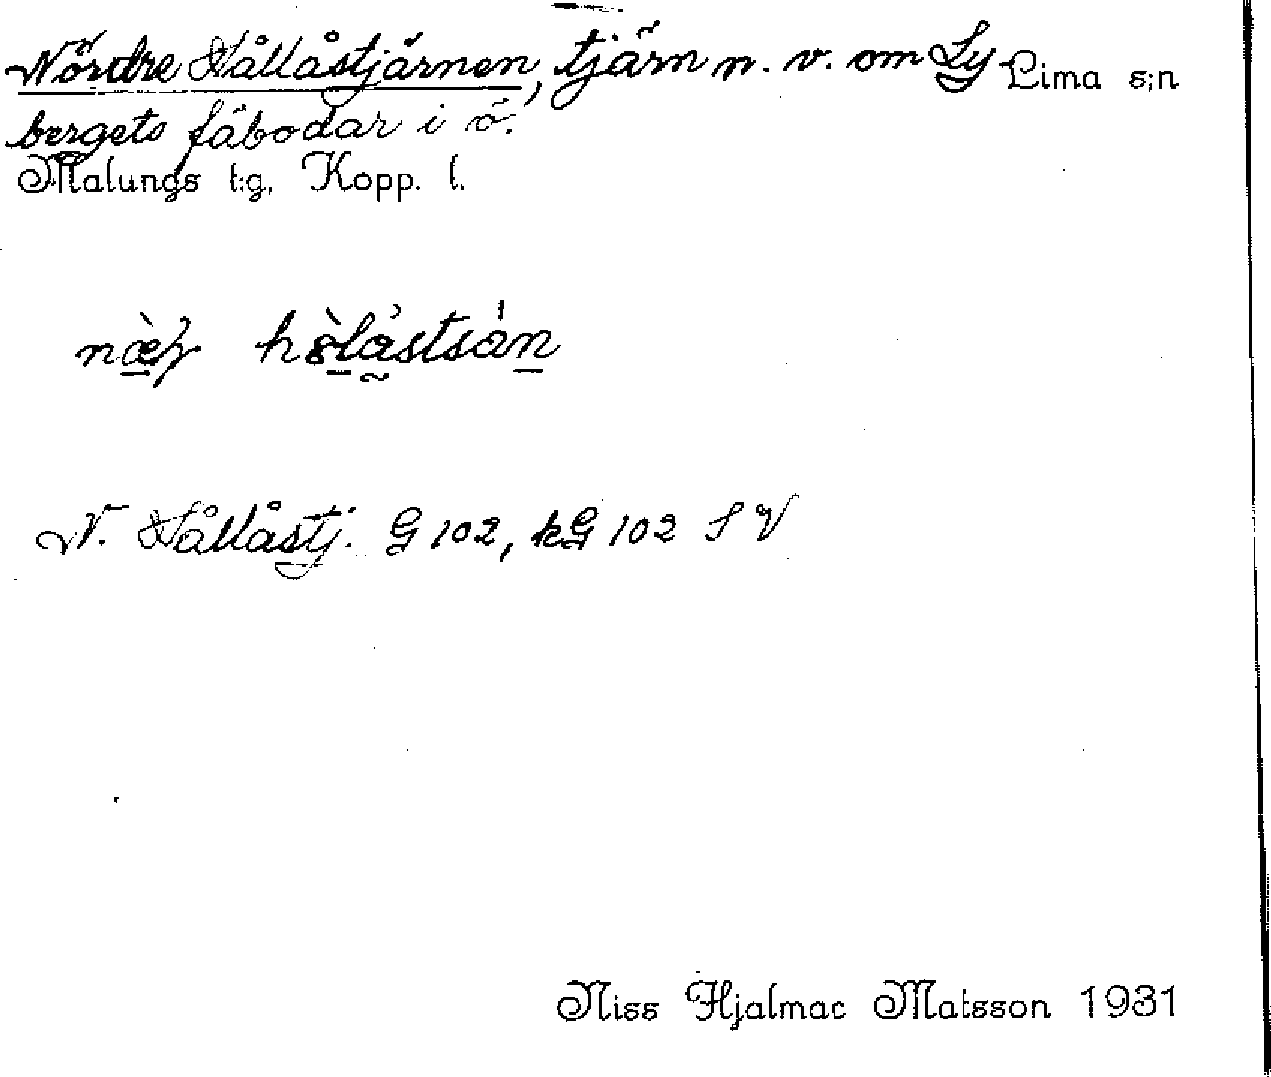 Nördre Hållåstjärnen, tjärn n. v. om Ly- Lima s:n
bergets fäbodar i ö.
Malungs t:g, Kopp. l.
N. Hållåstj. G 102, kG 102 S V
Niss Hjalmar Matsson 1931